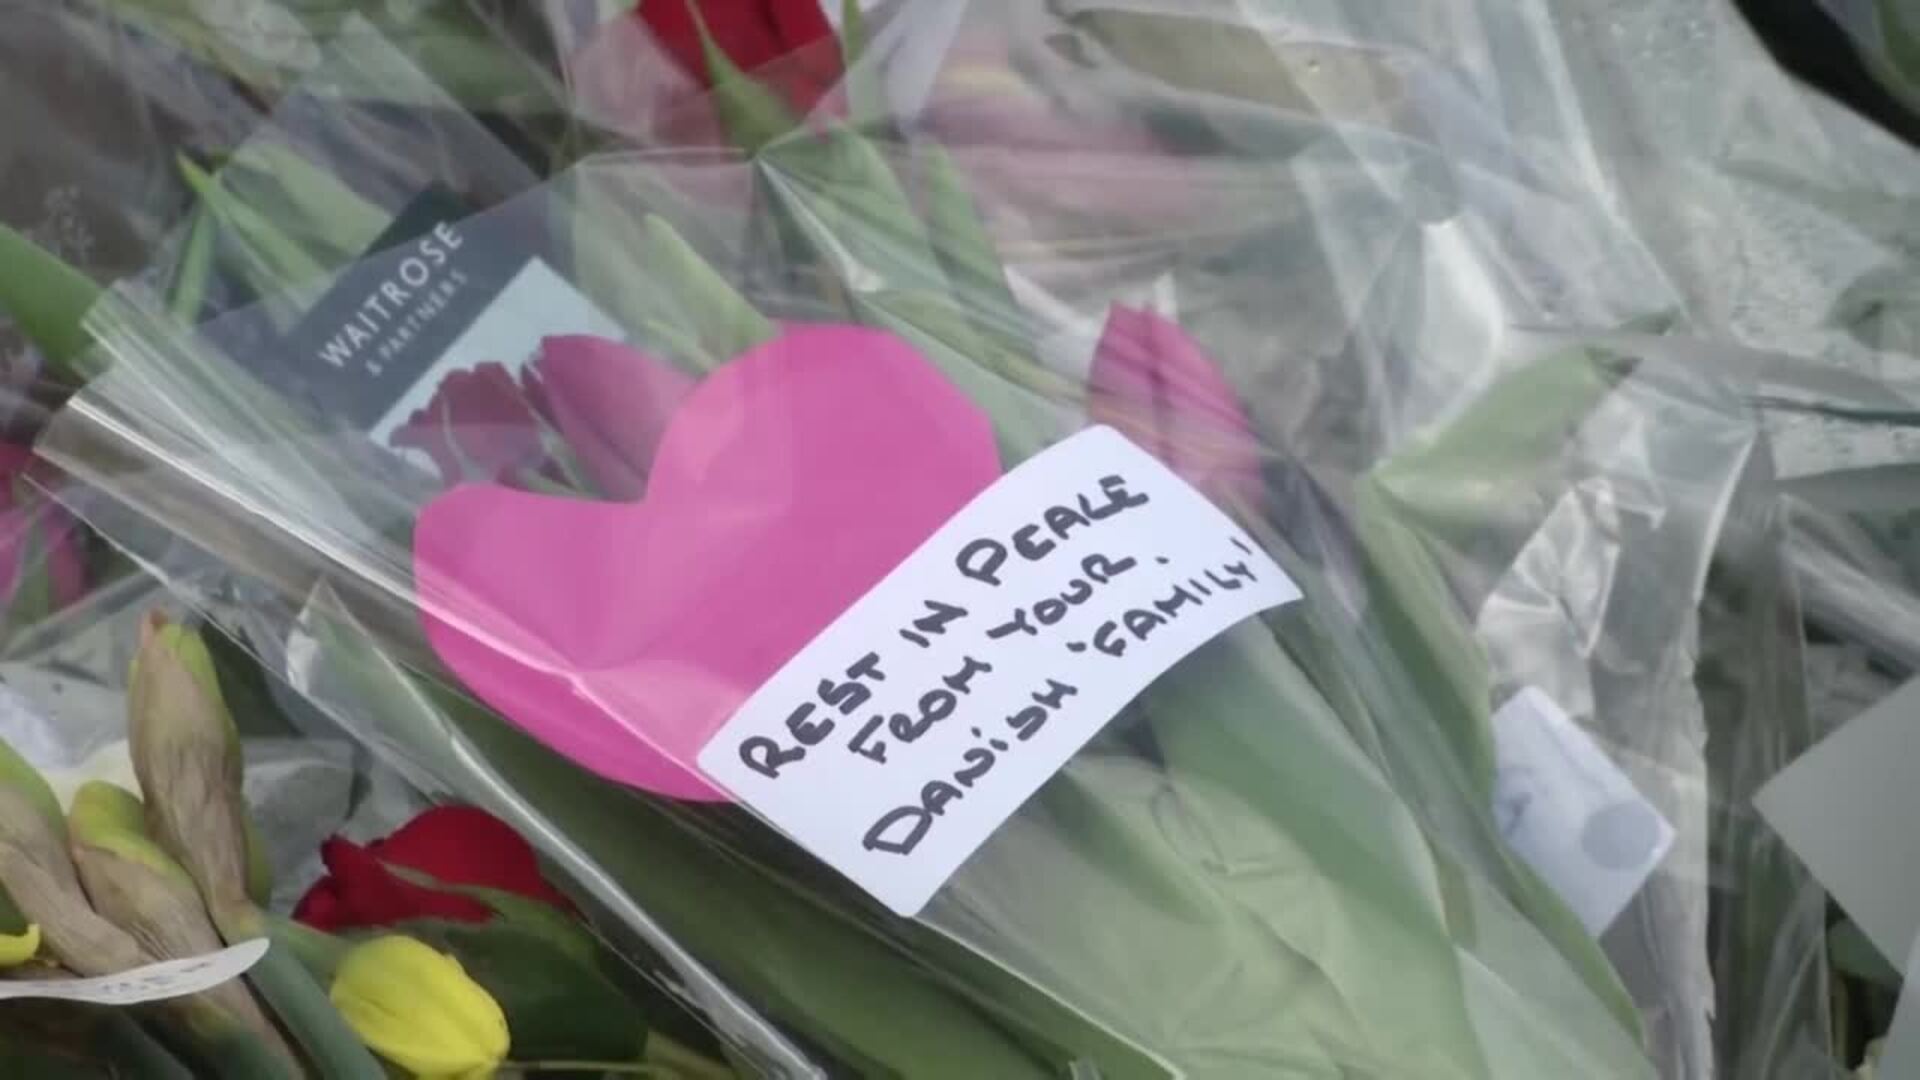 WAITROSE
& PARTNERS
REST IN PEACE
FROM YOUR
DANiSH 'FAMILY'